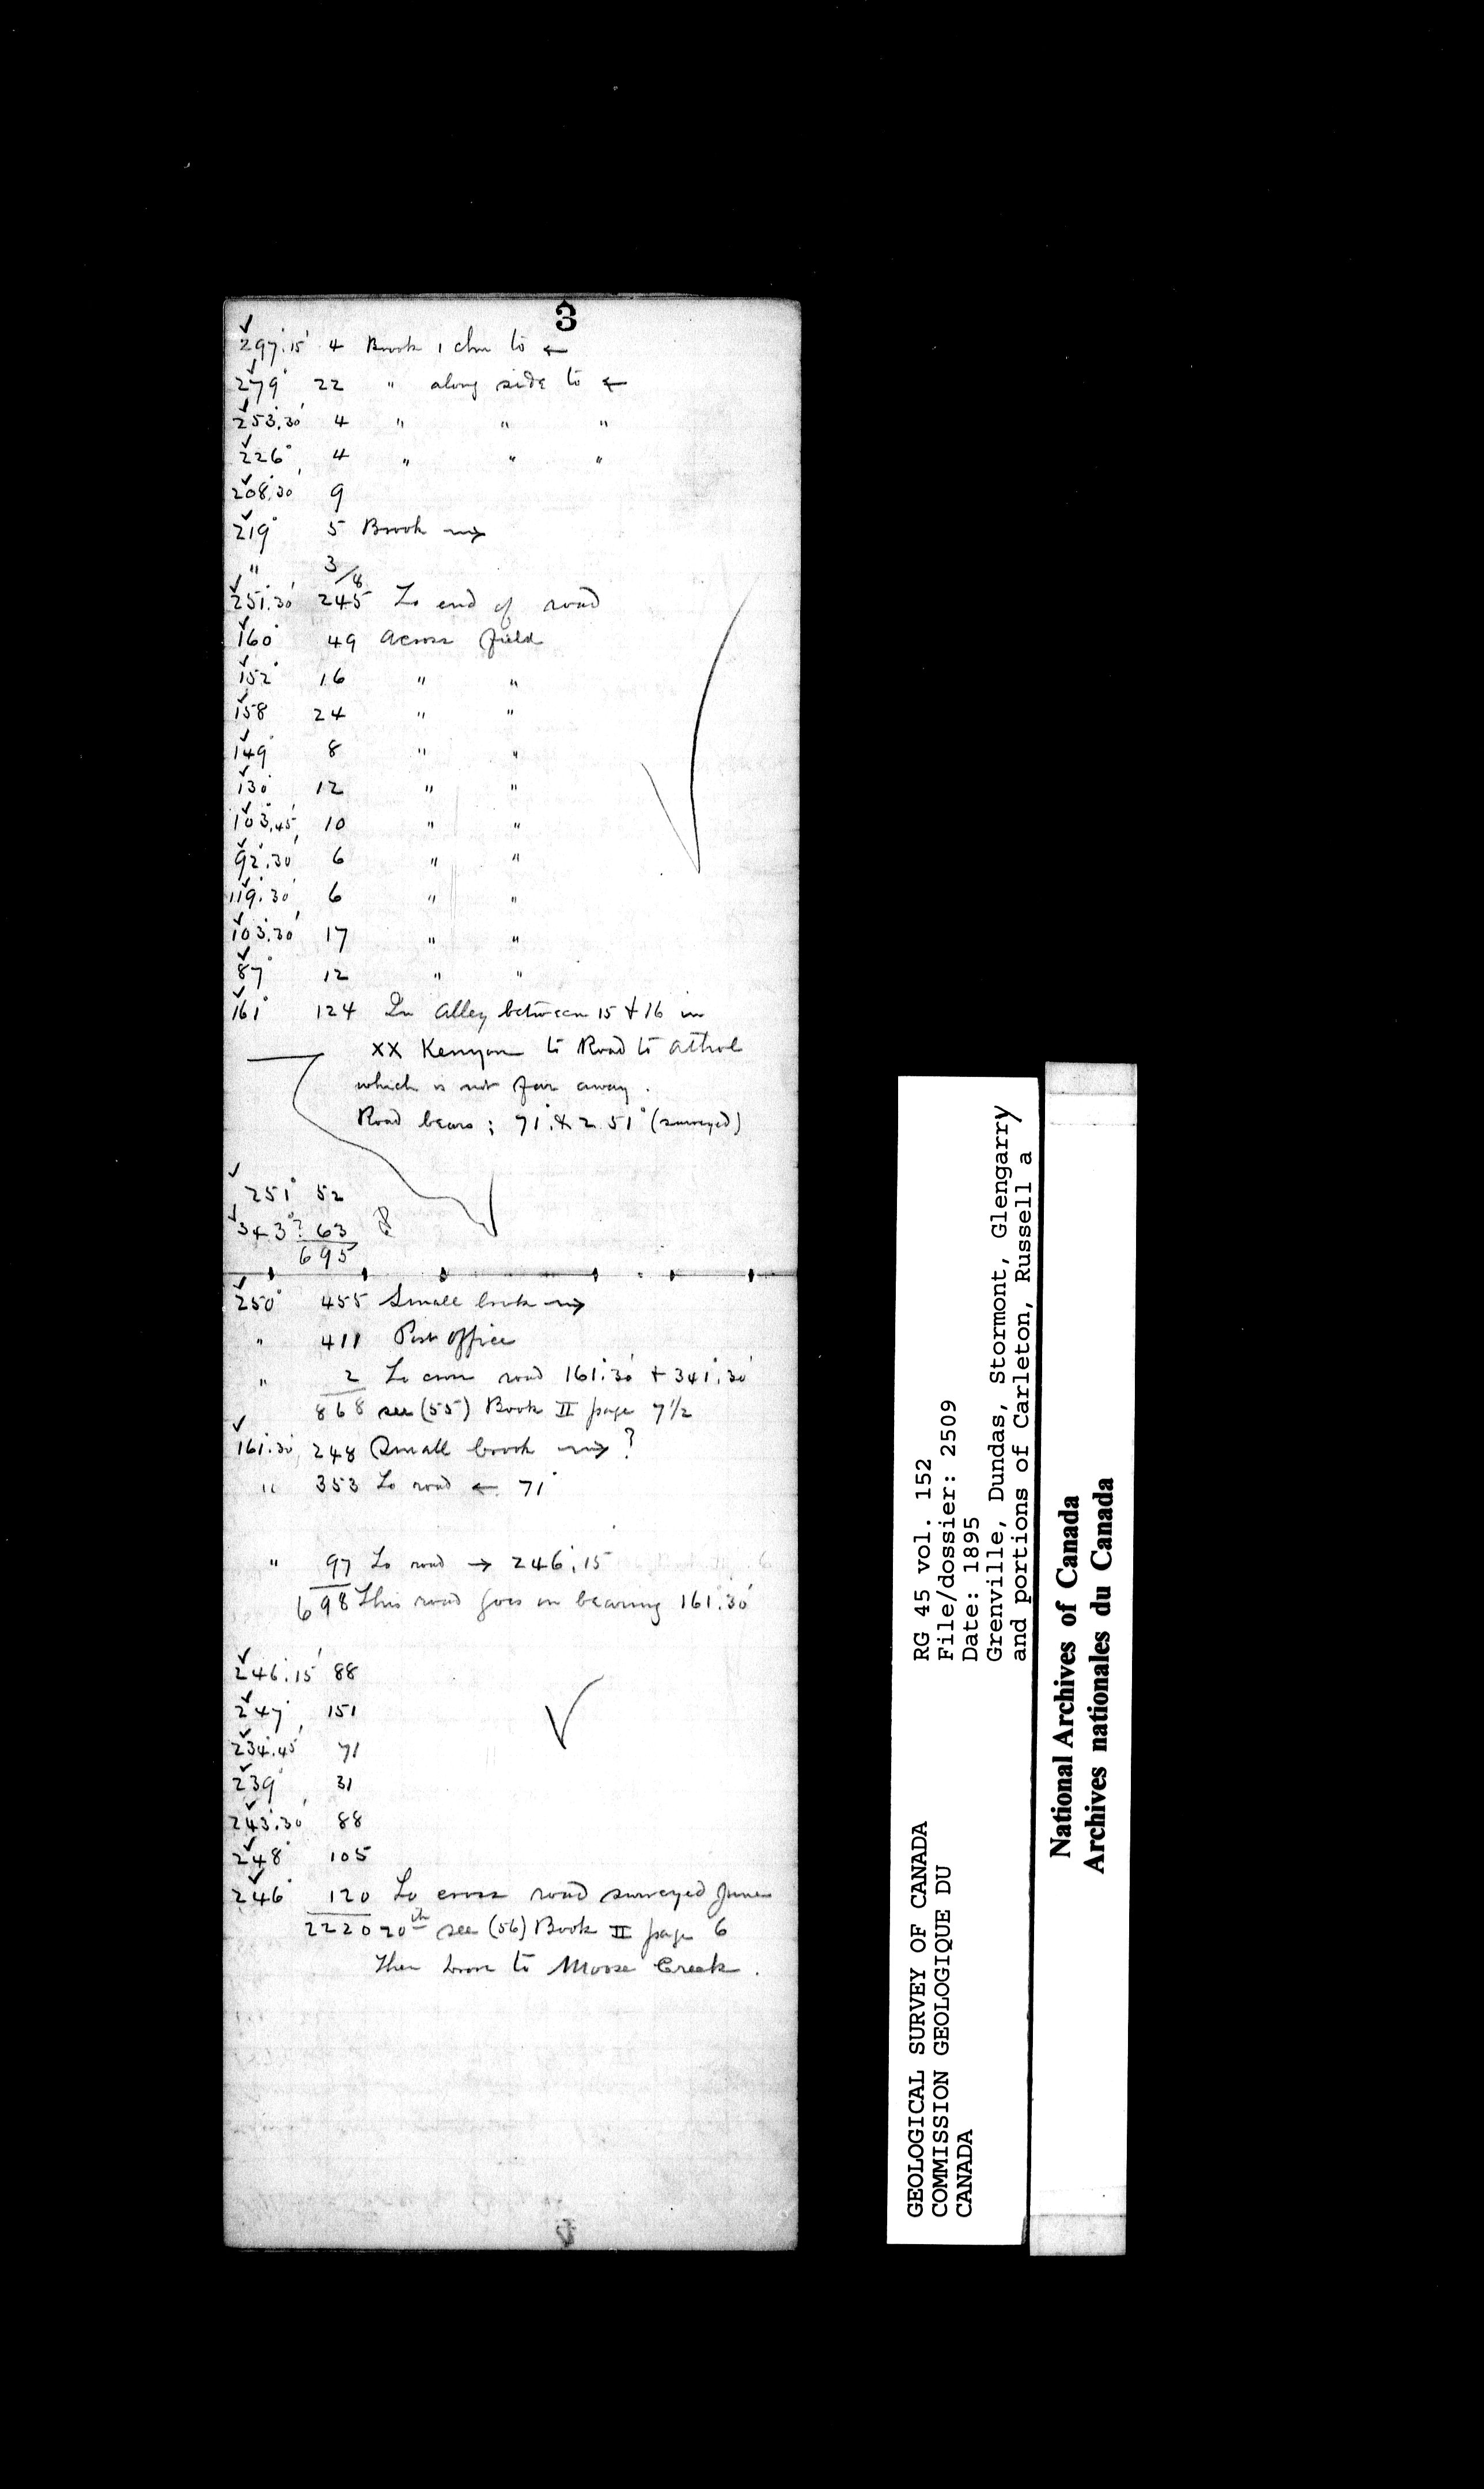 3
297°.15' 4 Brook 1 chn to ←
279° 22 " along side to ←
253°.30' 4 " " "
226° 4 " " "
208°.30' 9
219° 5 Brook →
" 3/8
251°.30' 245 To end of road
160° 49 Across field
152° 16 " "
158 24 " "
149° 8 " "
130° 12 " "
103°.45' 10 " "
92°.30' 6 " "
119°.30' 6 " "
103°.30' 17 " "
87° 12 " "
161° 124 In Alley between 15 & 16 in
XX Kenyon to Road to Athol
which is not far away.
Road bears; 71° & 251° (surveyed)
251° 52
343°? 63
695
250° 455 Small brook →
" 411 Post Office
" 2 To cross road 161°.30' + 341°.30'
868 see (55) Book II page 7 1/2
161°.30' 248 Small brook → ?
" 353 To road ← 71°
" 97 To road → 246°.15
698 This road goes on bearing 161°.30'
246°.15' 88
247° 151
234°.45' 71
239° 31
243°.30' 88
248° 105
246° 120 To cross road surveyed June
2220 20th see (56) Book II page 6
Then to Moose Creek.
GEOLOGICAL SURVEY OF CANADA
COMMISSION GEOLOGIQUE DU
CANADA
RG 45 vol. 152
File/dossier: 2509
Date: 1895
Grenville, Dundas, Stormont, Glengarry
and portions of Carleton, Russell a
National Archives of Canada
Archives nationales du Canada